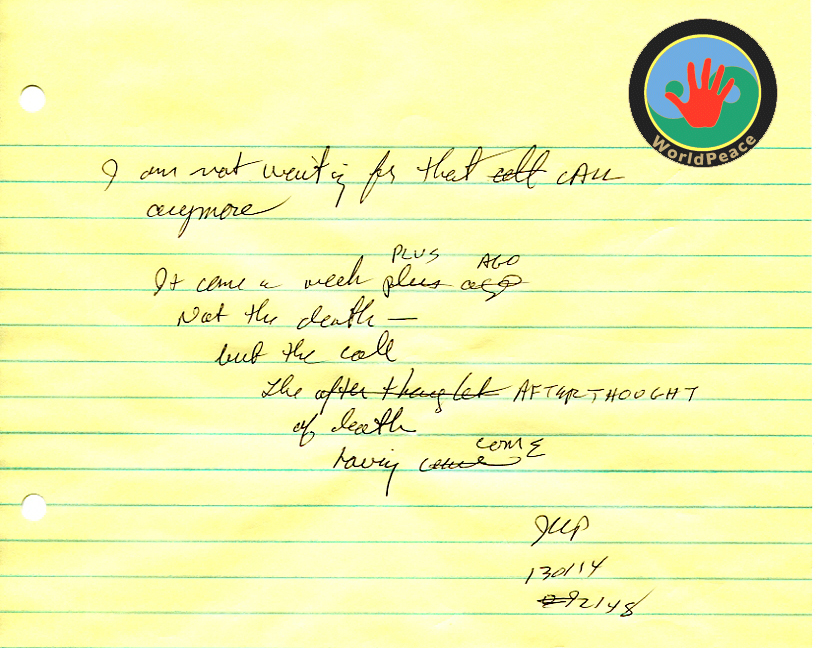 WorldPeace
I am not waiting for that call CALL
anymore
PLUS AGO
It came a week plus ago
Not the death —
but the call
The after thought AFTERTHOUGHT
of death
COME
having come
JWP
130114
2148